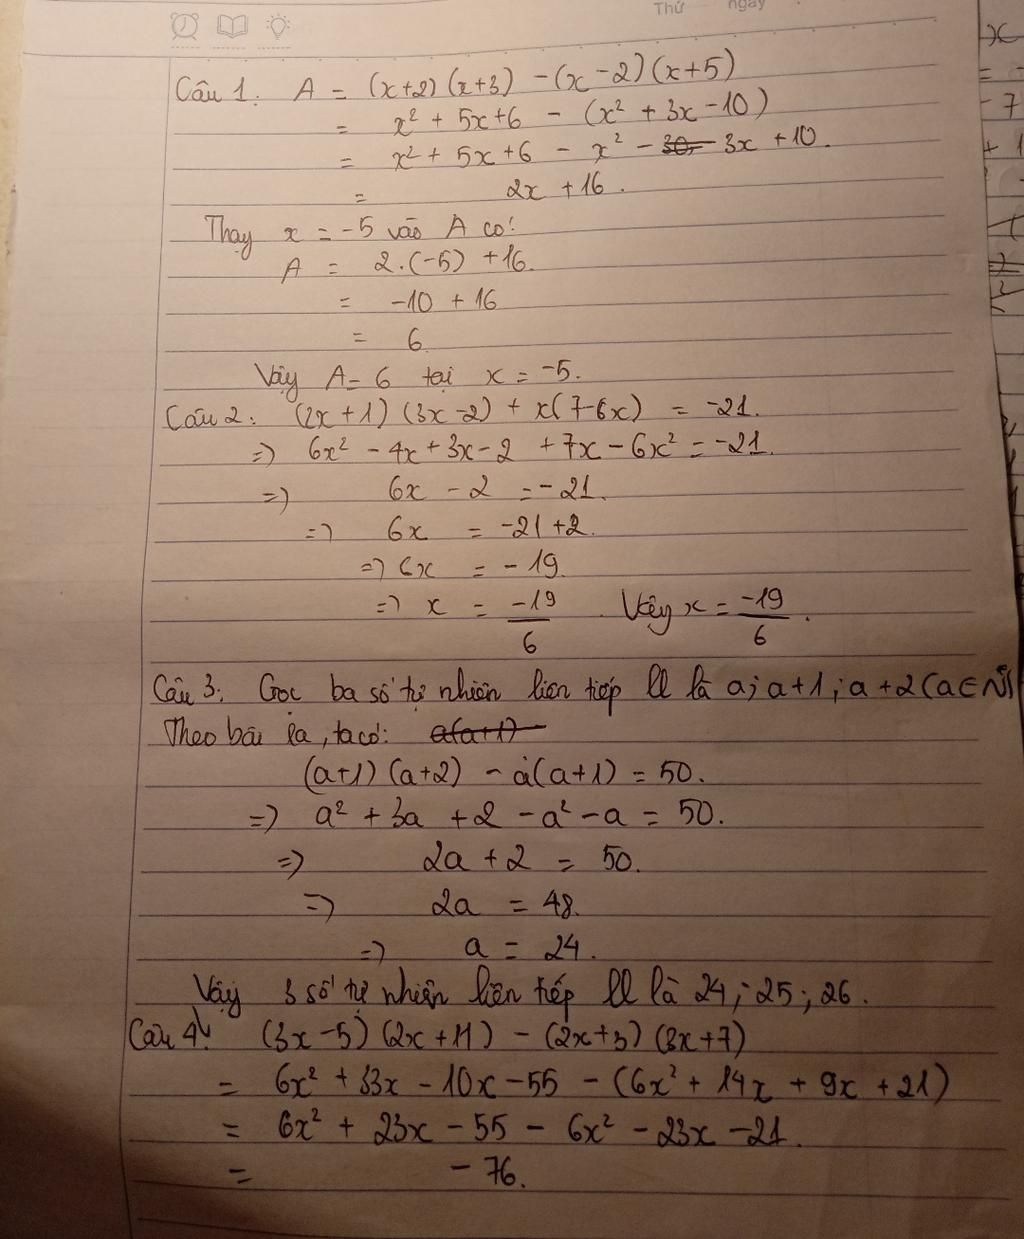 Thứ ngày
Câu 1: A = (x+2)(x+3) - (x-2)(x+5)
= x² + 5x+6 - (x² + 3x - 10)
= x² + 5x + 6 - x² - 3x + 10.
= 2x + 16.
Thay x = -5 vào A có:
A = 2.(-5) + 16.
= -10 + 16
= 6
Vậy A = 6 tại x = -5.
Câu 2: (2x+1)(3x-2) + x(7-6x) = -21.
=> 6x² - 4x + 3x - 2 + 7x - 6x² = -21.
=> 6x - 2 = -21.
=> 6x = -21 + 2.
=> 6x = -19.
=> x = -19/6 . Vậy x = -19/6 .
Câu 3: Gọi ba số tự nhiên liên tiếp ll là a; a+1; a+2 (a∈N)
Theo bài ra, ta có: a(a+1)
(a+1)(a+2) - a(a+1) = 50.
=> a² + 3a + 2 - a² - a = 50.
=> 2a + 2 = 50.
=> 2a = 48.
=> a = 24.
Vậy 3 số tự nhiên liên tiếp ll là 24; 25; 26.
Câu 4: (3x-5)(2x+11) - (2x+3)(3x+7)
= 6x² + 33x - 10x - 55 - (6x² + 14x + 9x + 21)
= 6x² + 23x - 55 - 6x² - 23x - 21.
= -76.